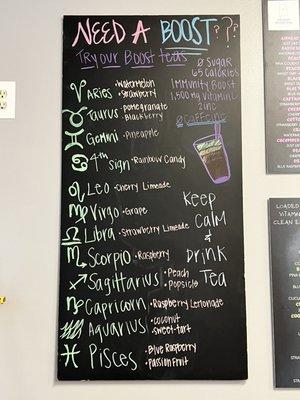 NEED A BOOST???
Try our Boost teas
0 Sugar
65 Calories
Immunity Boost
1,500 mg Vitamin C
Zinc
0 CAFFEINE
Aries • Watermelon
• Strawberry
Taurus • Pomegranate
Blackberry
Gemini • Pineapple
4th sign • Rainbow Candy
Leo • Cherry Limeade
Virgo • Grape
Libra • Strawberry Limeade
Scorpio • Raspberry
Sagittarius • Peach
• Popsicle
Capricorn • Raspberry Lemonade
Aquarius • Coconut
• Sweet-tart
Pisces • Blue Raspberry
• Passion Fruit
Keep
Calm
&
Drink
Tea
LOADED
VITAMI
CLEAN E